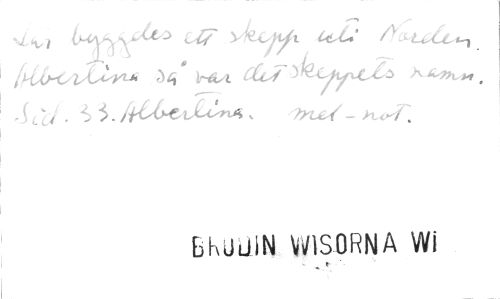 Där byggdes ett skepp uti Norden.
Albertina så var det skeppets namn.
Sid. 33. Albertina. mel-not.
BRODIN WISORNA WI